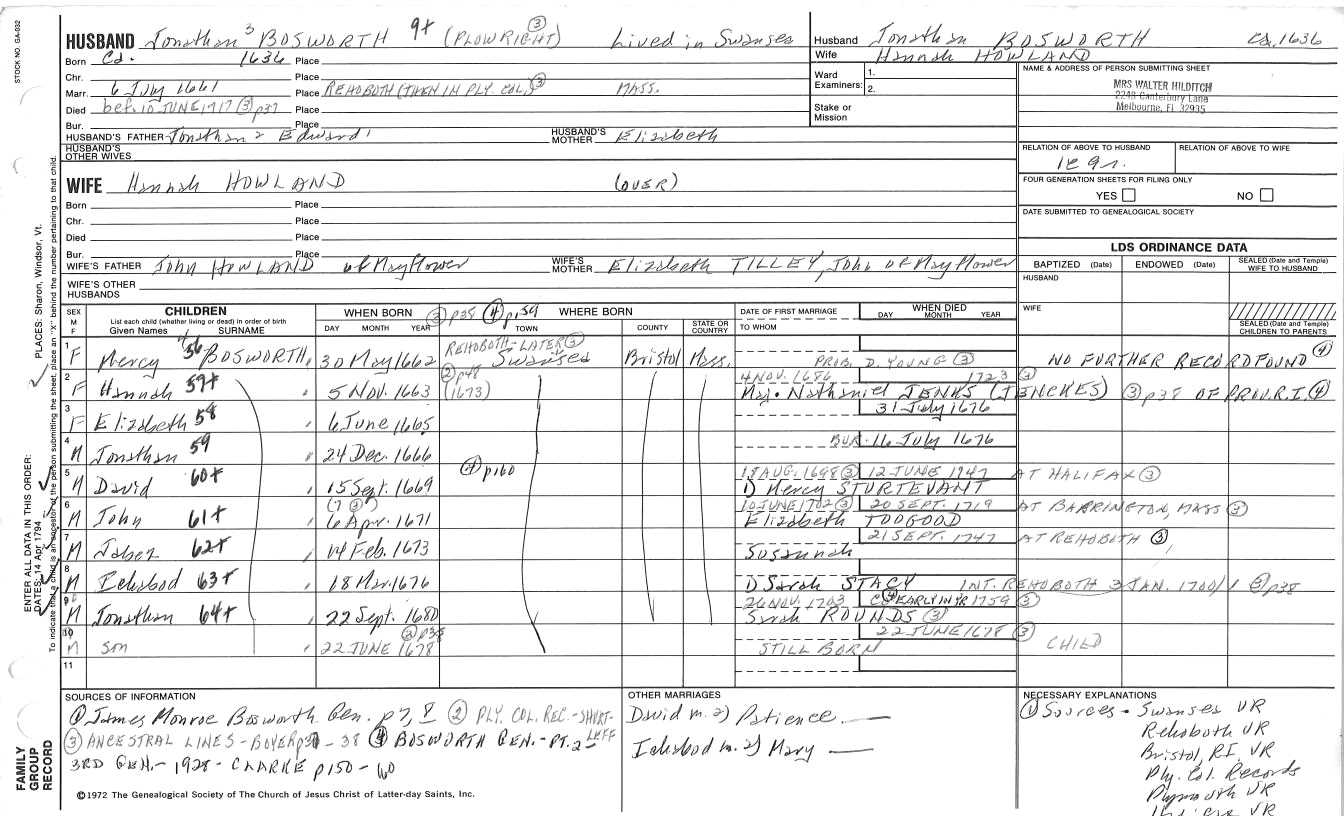 STOCK NO. GA-032
HUSBAND Jonathan 3 BOSWORTH 9+ (PLOWRIGHT) ③ Lived in Swansea
Born Ca. 1636 Place
Chr. Place
Marr. 6 July 1661 Place REHOBOTH (THEN IN PLY. COL.) ③ MASS.
Died bef. 10 JUNE 1717 ③ p37 Place
Bur. Place
HUSBAND'S FATHER Jonathan 2 Edward 1 HUSBAND'S MOTHER Elizabeth
HUSBAND'S OTHER WIVES
Husband Jonathan BOSWORTH Ca. 1636
Wife Hannah HOWLAND
Ward Examiners: 1. 2.
Stake or Mission
NAME & ADDRESS OF PERSON SUBMITTING SHEET
MRS WALTER HILDITCH
2248 Canterbury Lane
Melbourne, FL 32935
RELATION OF ABOVE TO HUSBAND RELATION OF ABOVE TO WIFE
FOUR GENERATION SHEETS FOR FILING ONLY
YES NO
DATE SUBMITTED TO GENEALOGICAL SOCIETY
LDS ORDINANCE DATA
BAPTIZED (Date) ENDOWED (Date) SEALED (Date and Temple) WIFE TO HUSBAND
HUSBAND
WIFE
SEALED (Date and Temple) CHILDREN TO PARENTS
WIFE Hannah HOWLAND (OVER)
Born Place
Chr. Place
Died Place
Bur. Place
WIFE'S FATHER John HOWLAND of Mayflower WIFE'S MOTHER Elizabeth TILLEY, John of Mayflower
WIFE'S OTHER HUSBANDS
SEX M F CHILDREN WHEN BORN ③ p38 ④ p159 WHERE BORN DATE OF FIRST MARRIAGE WHEN DIED
List each child (whether living or dead) in order of birth
Given Names SURNAME DAY MONTH YEAR TOWN COUNTY STATE OR COUNTRY TO WHOM DAY MONTH YEAR
1 F Mercy 56 BOSWORTH 30 May 1662 REHOBOTH-LATER ③ Swansea Bristol Mass. PROB. D. YOUNG ③ NO FURTHER RECORD FOUND ④
2 F Hannah 57+ 5 Nov. 1663 ② p48 (1673) 4 NOV. 1686 1723 ③
Maj. Nathaniel JENKS (JENCKES) ③ p38 OF PROV. R.I. ④
3 F Elizabeth 58 6 June 1665 31 July 1676
4 M Jonathan 59 24 Dec. 1666 BUR. 16 July 1676
5 M David 60+ 15 Sept. 1669 ④ p160 18 AUG. 1698 ③ 12 JUNE 1747 AT HALIFAX ③
1) Mercy STURTEVANT
6 M John 61+ (7 ③) 6 Apr. 1671 10 JUNE 1702 ③ 20 SEPT. 1719 AT BARRINGTON, MASS ③
Elizabeth TOOGOOD
7 M Jabez 62+ 14 Feb. 1673 21 SEPT. 1747 AT REHOBETH ③
Susannah
8 M Ichabod 63+ 18 Mar. 1676 1) Sarah STACY INT. REHOBOTH 3 JAN. 1700/1 ③ p38
9 M Jonathan 64+ 22 Sept. 1680 26 NOV. 1703 ④ EARLY IN YR 1759 ③
Sarah ROUNDS ③
10 M son 22 JUNE 1678 ② p38 22 JUNE 1678 ③ CHILD
STILL BORN
11
SOURCES OF INFORMATION
① James Monroe Bosworth Gen. p7, 8 ② PLY. COL. REC.-SHURTLEFF
③ ANCESTRAL LINES-BOYER p37-38 ④ BOSWORTH GEN.-PT.2-
3RD GEN.-1928-CLARKE p150-60
©1972 The Genealogical Society of The Church of Jesus Christ of Latter-day Saints, Inc.
OTHER MARRIAGES
David m. 2) Patience
Ichabod m. 2) Mary
NECESSARY EXPLANATIONS
① Sources - Swansea VR
Rehoboth VR
Bristol, R.I. VR
Ply. Col. Records
Plymouth VR
FAMILY GROUP RECORD
ENTER ALL DATA IN THIS ORDER:
DATES: 14 Apr 1794 PLACES: Sharon, Windsor, Vt.
To indicate that a child is an ancestor of the person submitting the sheet, place an "X" behind the number pertaining to that child.